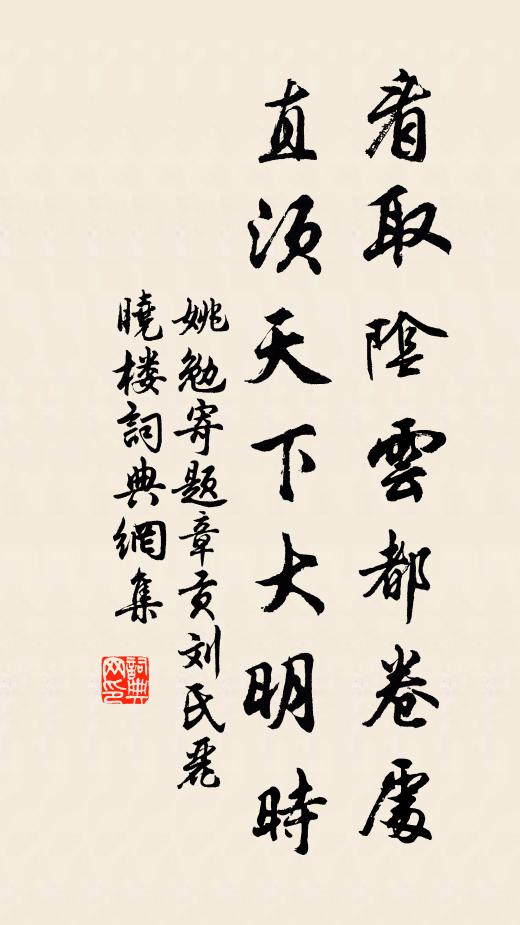 看取陰雲都卷處
直須天下大明時
姚勉寄题章贡刘氏麗
曉楼詞典網集
詞典网印